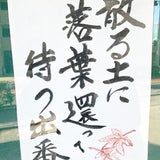 散る土に
落葉還って
待つ出番